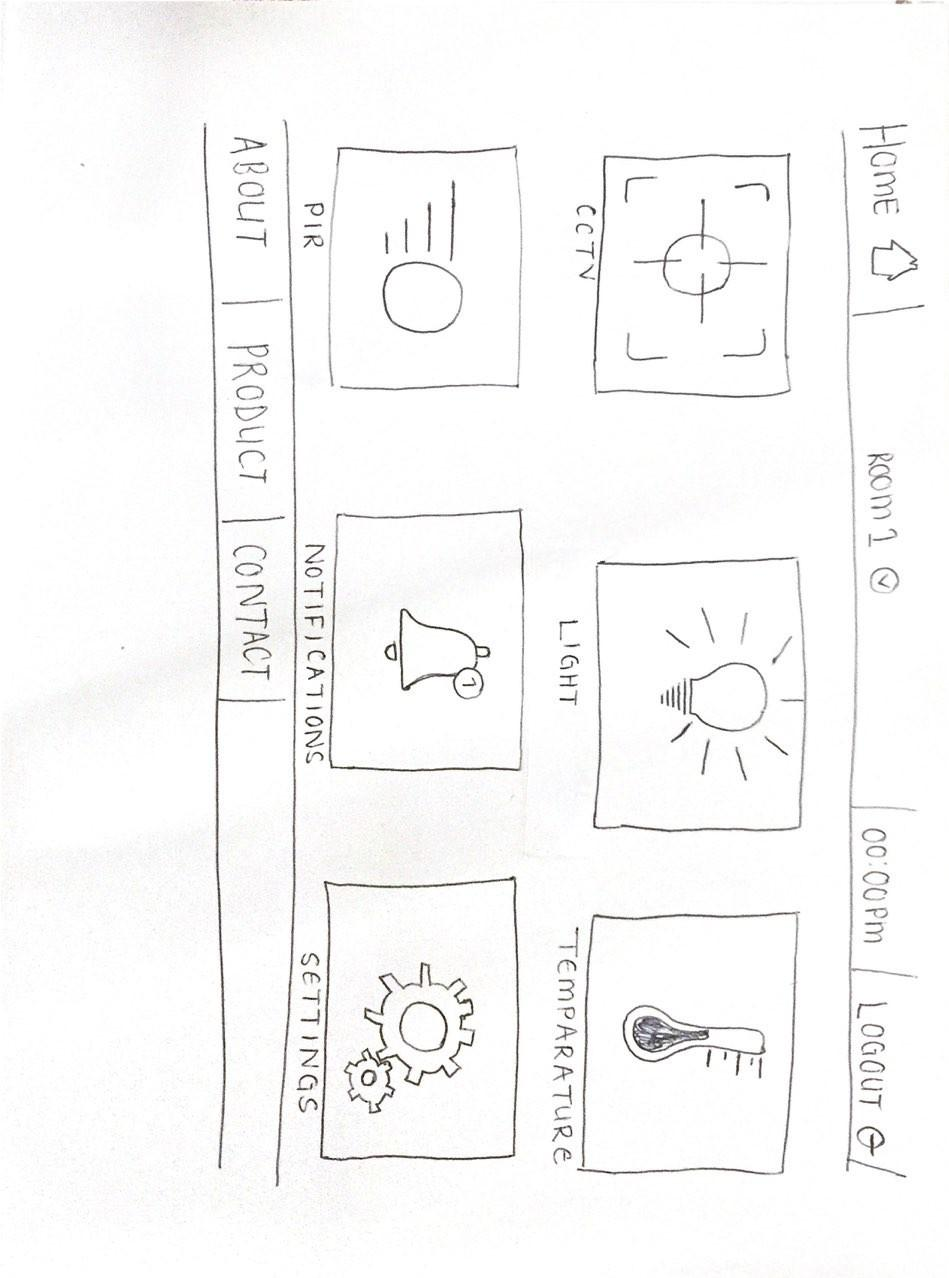 HOME ROOM 1 00:00PM LOGOUT
CCTV LIGHT TEMPARATURE
1
PIR NOTIFICATIONS SETTINGS
ABOUT PRODUCT CONTACT